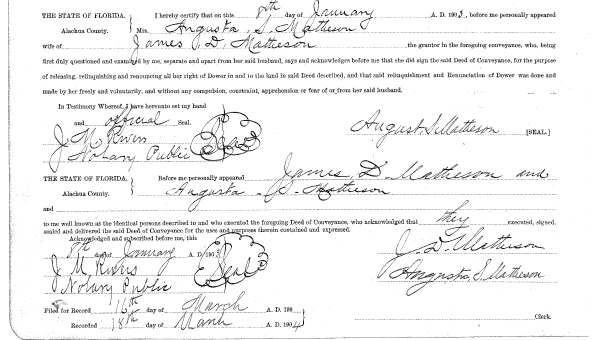 THE STATE OF FLORIDA. I hereby certify that on this 8th day of January A. D. 1903, before me personally appeared
Alachua County. Mrs. Augusta S. Matheson
wife of James D. Matheson the grantor in the foregoing conveyance, who, being
first duly questioned and examined by me, separate and apart from her said husband, says and acknowledges before me that she did sign the said Deed of Conveyance, for the purpose
of releasing, relinquishing and renouncing all her right of Dower in and to the land in said Deed described, and that said relinquishment and Renunciation of Dower was done and
made by her freely and voluntarily, and without any compulsion, constraint, apprehension or fear of or from her said husband.
In Testimony Whereof, I have hereunto set my hand
and official Seal.
J M Rivers Seal August S. Matheson [SEAL.]
Notary Public
THE STATE OF FLORIDA. Before me personally appeared James D. Matheson and
Alachua County. Augusta S. Matheson
and
to me well known as the identical persons described in and who executed the foregoing Deed of Conveyance, who acknowledged that they executed, signed,
sealed and delivered the said Deed of Conveyance for the uses and purposes therein contained and expressed.
Acknowledged and subscribed before me, this
8th day of January A. D. 190 J. D. Matheson
J M Rivers Seal Augusta S. Matheson
Notary Public
Filed for Record 16th day of March A. D. 190
Recorded 18th day of March A. D. 1904 Clerk.